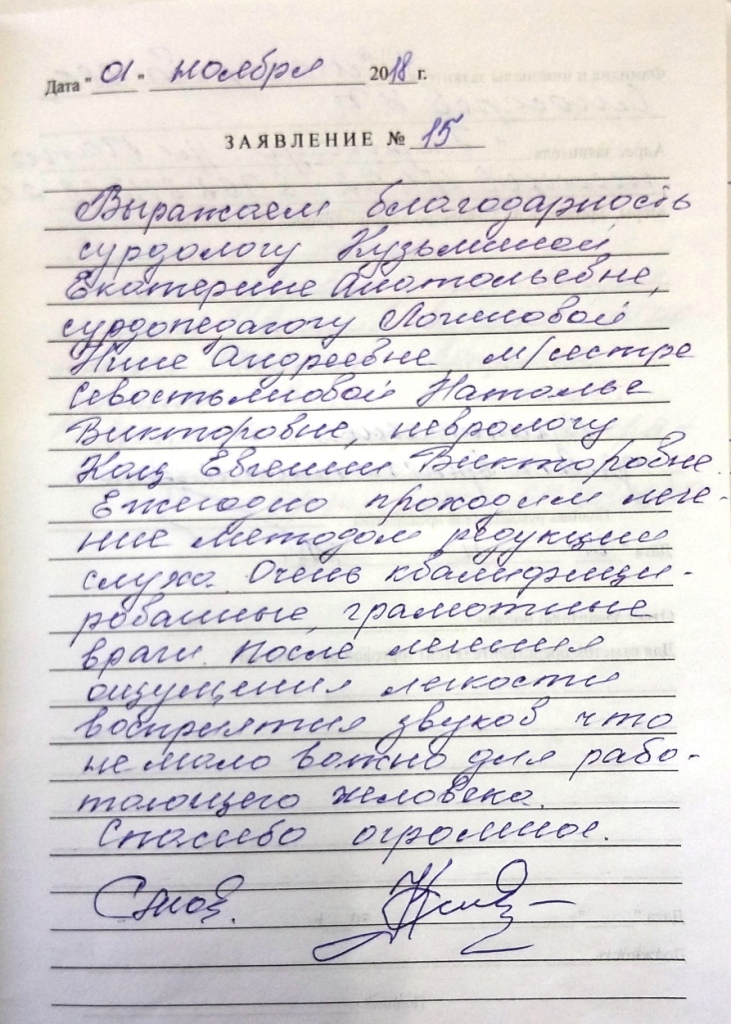 Дата "01" ноября 2018 г.
ЗАЯВЛЕНИЕ № 15
Выражаем благодарность
сурдологу Кузьминой
Екатерине Анатольевне,
сурдопедагогу Логиновой
Нине Андреевне, м/сестре
Севостьяновой Наталье
Викторовне, неврологу
Евгении Викторовне.
Ежегодно проходим лече-
ние методом редукции
слуха. Очень квалифици-
рованные, грамотные
врачи. После лечения
ощущения легкости
восприятия звуков что
не мало важно для рабо-
тающего человека.
Спасибо огромное.